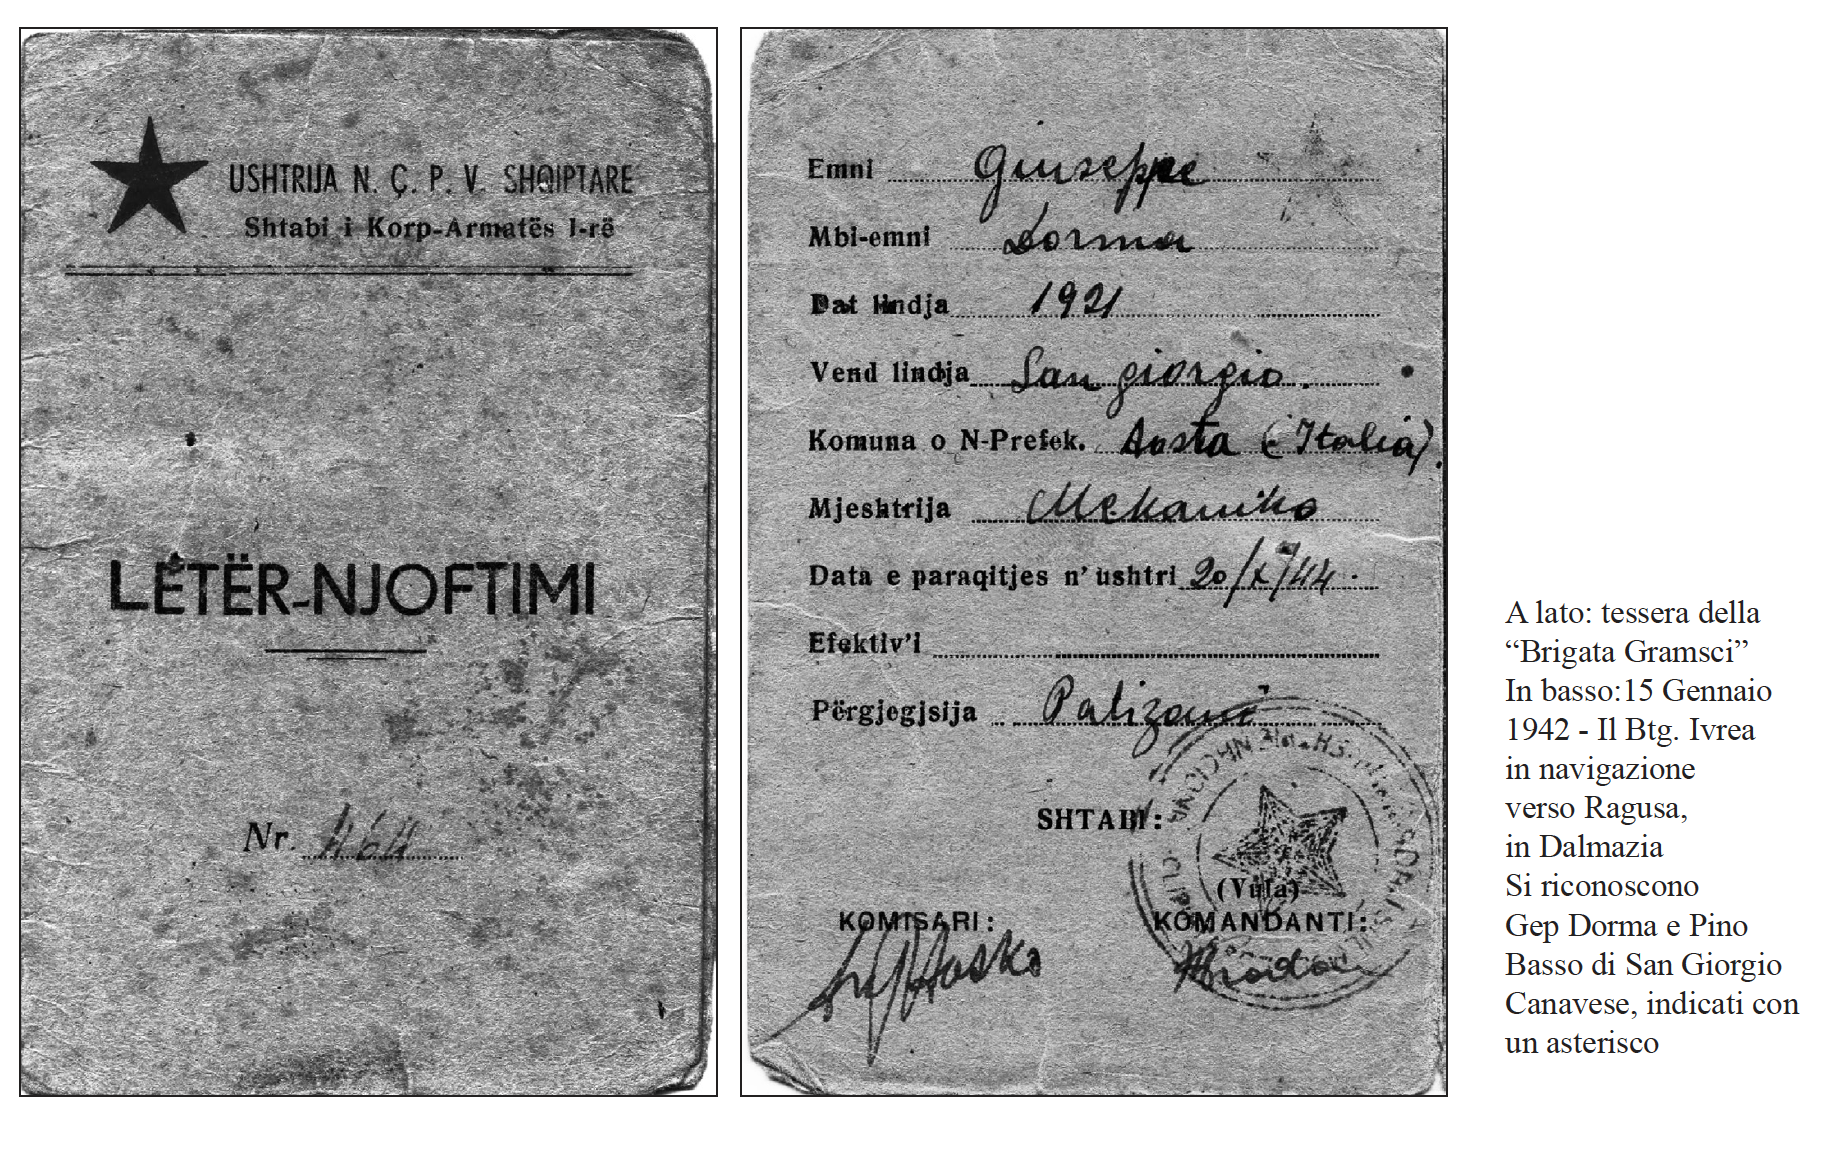 USHTRIJA N. Ç. P. V. SHQIPTARE
Shtabi i Korp-Armatës I-rë
LETËR-NJOFTIMI
Nr.
Emni Giuseppe
Mbi-emni Dorma
Dat lindja 1921
Vend lindja San giorgio.
Komuna o N-Prefek. Aosta (Italia).
Mjeshtrija Mekaniko
Data e paraqitjes n' ushtri 20/X/44.
Efektiv'i
Përgjegjsija Patizani
SHTABI:
(Vula)
KOMISARI: KOMANDANTI:
A lato: tessera della
“Brigata Gramsci”
In basso:15 Gennaio
1942 - Il Btg. Ivrea
in navigazione
verso Ragusa,
in Dalmazia
Si riconoscono
Gep Dorma e Pino
Basso di San Giorgio
Canavese, indicati con
un asterisco